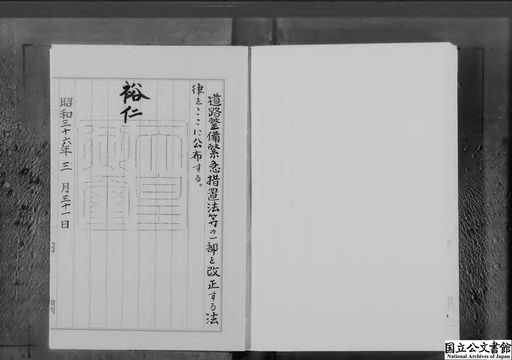 道路整備緊急措置法等の一部を改正する法
律をここに公布する。
裕仁
昭和三十六年三月三十一日
国立公文書館
National Archives of Japan